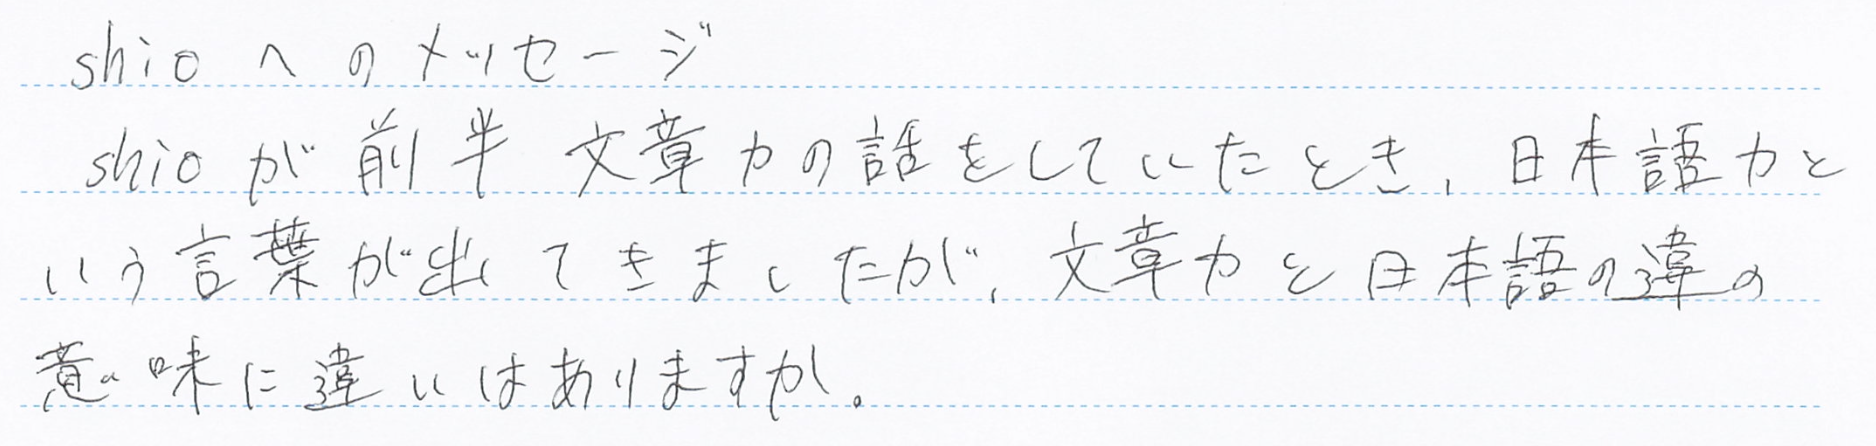 shioへのメッセージ
shioが前半文章力の話をしていたとき、日本語力と
いう言葉が出てきましたが、文章力と日本語の違の
意味に違いはありますか。